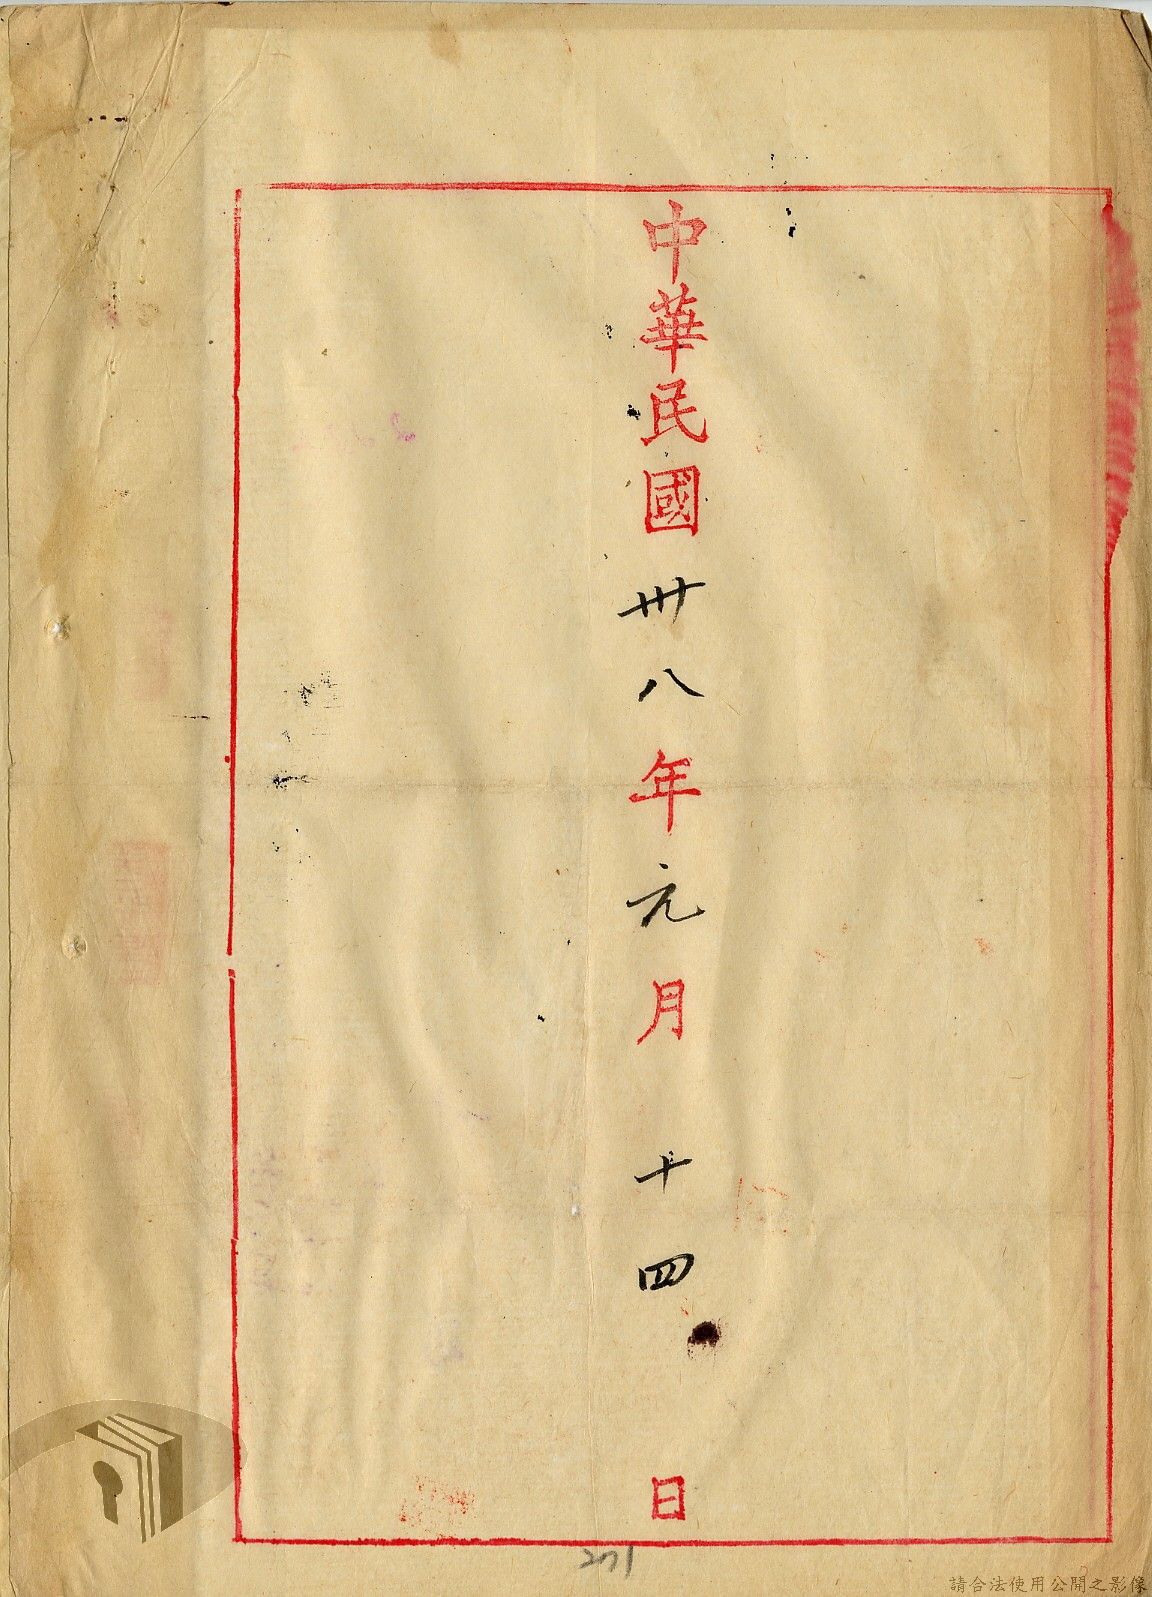 中華民國卅八年元月十四日
271
請合法使用公開之影像